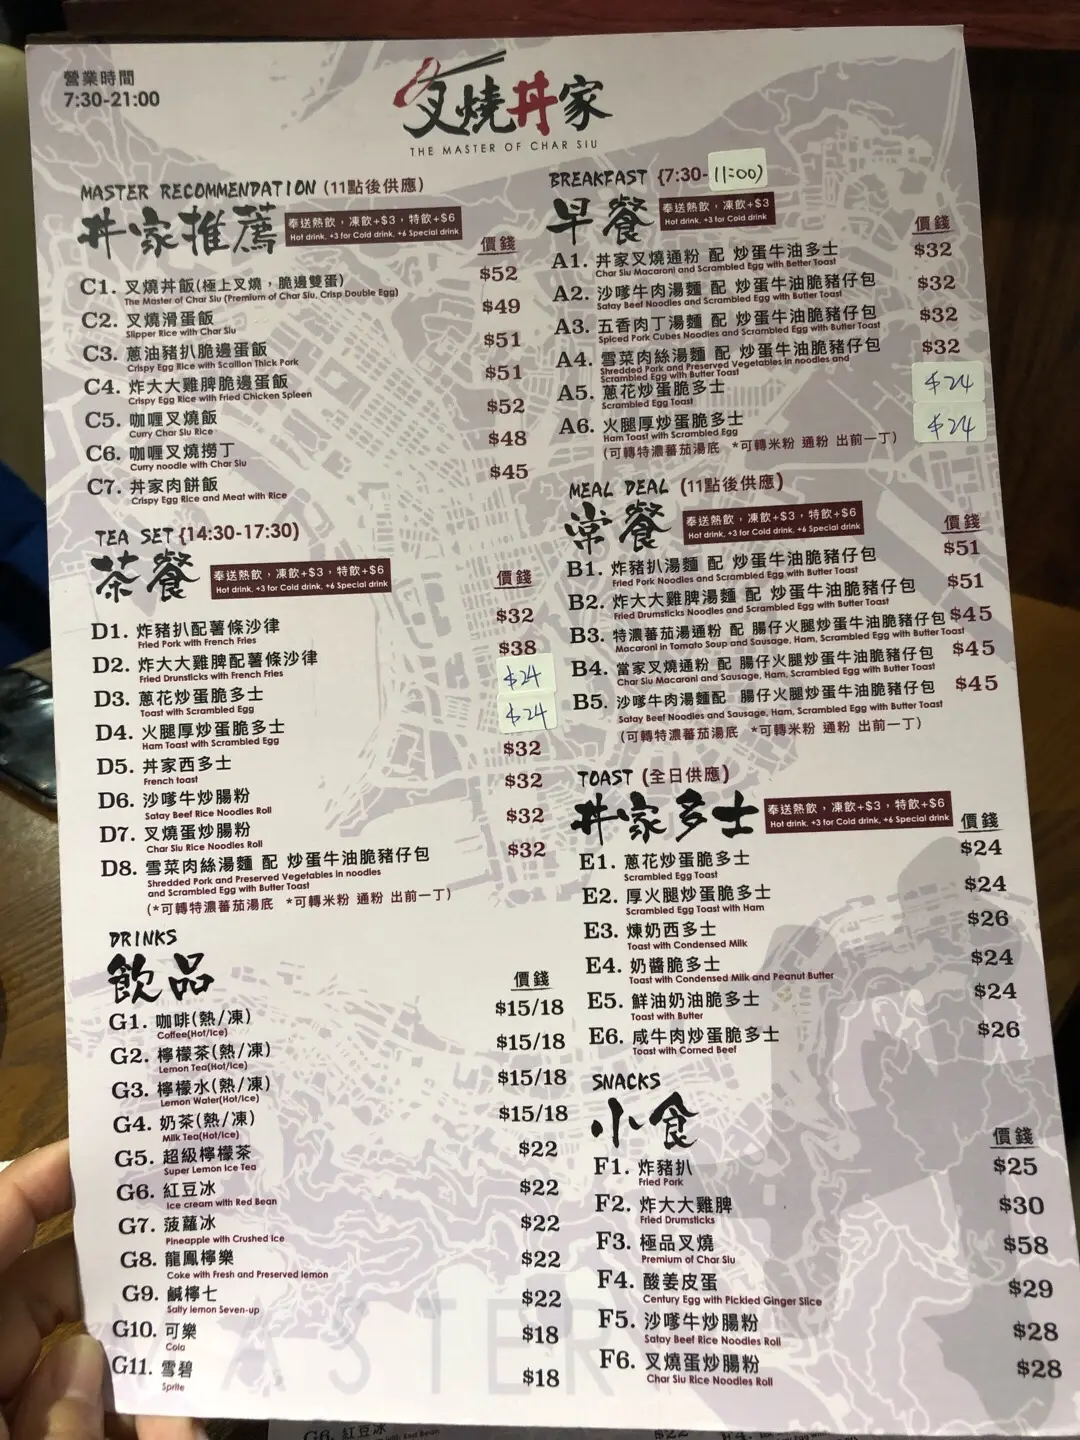 營業時間
7:30-21:00
叉燒丼家
THE MASTER OF CHAR SIU
MASTER RECOMMENDATION (11點後供應)
丼家推薦
奉送熱飲，凍飲+$3，特飲+$6
Hot drink, +3 for Cold drink, +6 Special drink
價錢
C1. 叉燒丼飯(極上叉燒，脆邊雙蛋) $52
The Master of Char Siu (Premium of Char Siu, Crisp Double Egg)
C2. 叉燒滑蛋飯 $49
Slipper Rice with Char Siu
C3. 蔥油豬扒脆邊蛋飯 $51
Crispy Egg Rice with Scallion Thick Pork
C4. 炸大大雞脾脆邊蛋飯 $51
Crispy Egg Rice with Fried Chicken Spleen
C5. 咖喱叉燒飯 $52
Curry Char Siu Rice
C6. 咖喱叉燒撈丁 $48
Curry noodle with Char Siu
C7. 丼家肉餅飯 $45
Crispy Egg Rice and Meat with Rice
TEA SET {14:30-17:30)
茶餐
奉送熱飲，凍飲+$3，特飲+$6
Hot drink, +3 for Cold drink, +6 Special drink
價錢
D1. 炸豬扒配薯條沙律 $32
Fried Pork with French Fries
D2. 炸大大雞脾配薯條沙律 $38
Fried Drunsticks with French Fries
D3. 蔥花炒蛋脆多士 $24
Toast with Scrambled Egg
D4. 火腿厚炒蛋脆多士 $24
Ham Toast with Scrambled Egg
D5. 丼家西多士 $32
French toast
D6. 沙嗲牛炒腸粉 $32
Satay Beef Rice Noodles Roll
D7. 叉燒蛋炒腸粉 $32
Char Siu Rice Noodles Roll
D8. 雪菜肉絲湯麵 配 炒蛋牛油脆豬仔包 $32
Shredded Pork and Preserved Vegetables in noodles
and Scrambled Egg with Butter Toast
(*可轉特濃蕃茄湯底 *可轉米粉 通粉 出前一丁)
DRINKS
飲品
價錢
G1. 咖啡(熱/凍) $15/18
Coffee(Hot/Ice)
G2. 檸檬茶(熱/凍) $15/18
Lemon Tea(Hot/Ice)
G3. 檸檬水(熱/凍) $15/18
Lemon Water(Hot/Ice)
G4. 奶茶(熱/凍) $15/18
Milk Tea(Hot/Ice)
G5. 超級檸檬茶 $22
Super Lemon Ice Tea
G6. 紅豆冰 $22
Ice cream with Red Bean
G7. 菠蘿冰 $22
Pineapple with Crushed Ice
G8. 龍鳳檸樂 $22
Coke with Fresh and Preserved lemon
G9. 鹹檸七 $22
Salty lemon Seven-up
G10. 可樂 $18
Cola
G11. 雪碧 $18
Sprite
BREAKFAST {7:30-11:00)
早餐
奉送熱飲，凍飲+$3
Hot drink, +3 for Cold drink
價錢
A1. 丼家叉燒通粉 配 炒蛋牛油多士 $32
Char Siu Macaroni and Scrambled Egg with Better Toast
A2. 沙嗲牛肉湯麵 配 炒蛋牛油脆豬仔包 $32
Satay Beef Noodles and Scrambled Egg with Butter Toast
A3. 五香肉丁湯麵 配 炒蛋牛油脆豬仔包 $32
Spiced Pork Cubes Noodles and Scrambled Egg with Butter Toast
A4. 雪菜肉絲湯麵 配 炒蛋牛油脆豬仔包 $32
Shredded Pork and Preserved Vegetables in noodles and
Scrambled Egg with Butter Toast
A5. 蔥花炒蛋脆多士 $24
Scrambled Egg Toast
A6. 火腿厚炒蛋脆多士 $24
Ham Toast with Scrambled Egg
(可轉特濃蕃茄湯底 *可轉米粉 通粉 出前一丁)
MEAL DEAL (11點後供應)
常餐
奉送熱飲，凍飲+$3，特飲+$6
Hot drink, +3 for Cold drink, +6 Special drink
價錢
B1. 炸豬扒湯麵 配 炒蛋牛油脆豬仔包 $51
Fried Pork Noodles and Scrambled Egg with Butter Toast
B2. 炸大大雞脾湯麵 配 炒蛋牛油脆豬仔包 $51
Fried Drumsticks Noodles and Scrambled Egg with Butter Toast
B3. 特濃蕃茄湯通粉 配 腸仔火腿炒蛋牛油脆豬仔包 $45
Macaroni in Tomato Soup and Sausage, Ham, Scrambled Egg with Butter Toast
B4. 當家叉燒通粉 配 腸仔火腿炒蛋牛油脆豬仔包 $45
Char Siu Macaroni and Sausage, Ham, Scrambled Egg with Butter Toast
B5. 沙嗲牛肉湯麵配 腸仔火腿炒蛋牛油脆豬仔包 $45
Satay Beef Noodles and Sausage, Ham, Scrambled Egg with Butter Toast
(可轉特濃蕃茄湯底 *可轉米粉 通粉 出前一丁)
TOAST (全日供應)
丼家多士
奉送熱飲，凍飲+$3，特飲+$6
Hot drink, +3 for Cold drink, +6 Special drink
價錢
E1. 蔥花炒蛋脆多士 $24
Scrambled Egg Toast
E2. 厚火腿炒蛋脆多士 $24
Scrambled Egg Toast with Ham
E3. 煉奶西多士 $26
Toast with Condensed Milk
E4. 奶醬脆多士 $24
Toast with Condensed Milk and Peanut Butter
E5. 鮮油奶油脆多士 $24
Toast with Butter
E6. 咸牛肉炒蛋脆多士 $26
Toast with Corned Beef
SNACKS
小食
價錢
F1. 炸豬扒 $25
Fried Pork
F2. 炸大大雞脾 $30
Fried Drumsticks
F3. 極品叉燒 $58
Premium of Char Siu
F4. 酸姜皮蛋 $29
Century Egg with Pickled Ginger Slice
F5. 沙嗲牛炒腸粉 $28
Satay Beef Rice Noodles Roll
F6. 叉燒蛋炒腸粉 $28
Char Siu Rice Noodles Roll
MASTER
G6. 紅豆冰 $22